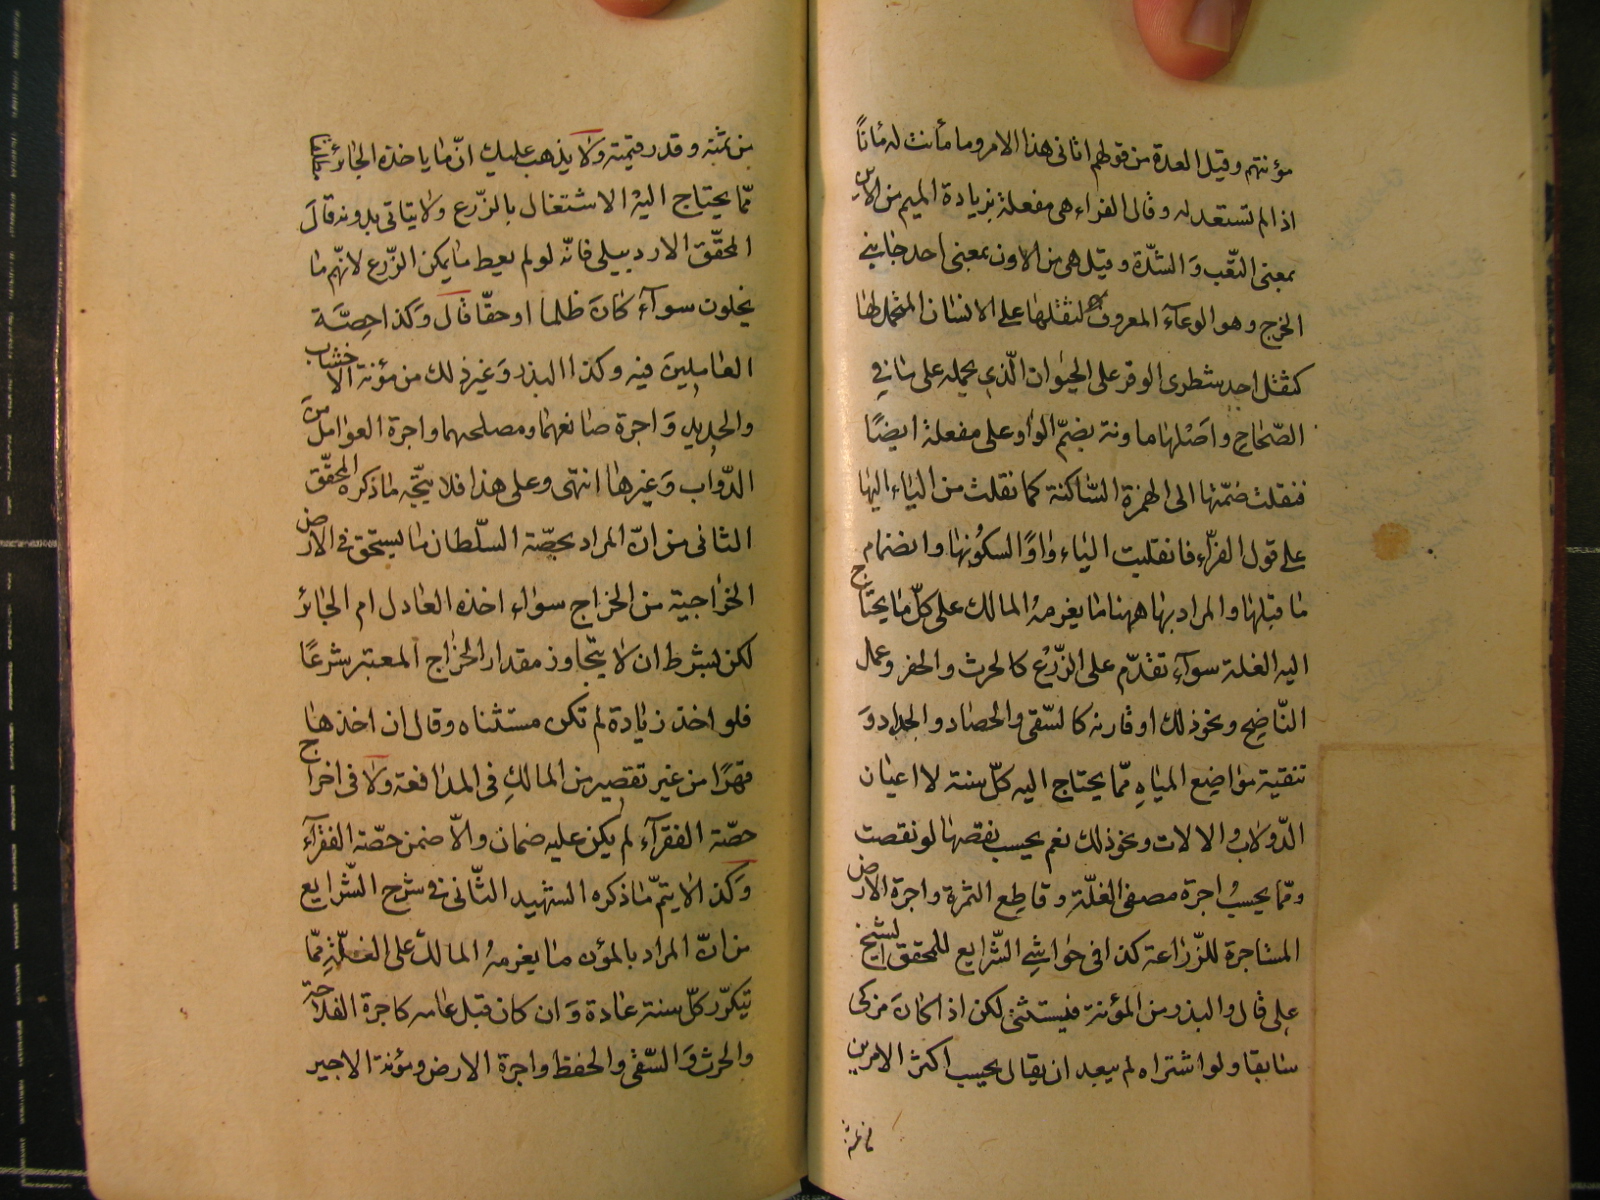 مؤنتهم وقيل العدة من قولهم اتانى هذا الامر وما مأنت له مأناً
اذا لم تستعد له وقال الفراء هى مفعلة بزيادة الميم من الاين
بمعنى التعب وَالشدّة وقيل هى من الاون بمعنى احد جانبي
الخرج وهو الوعاء المعروف لثقلها على الانسان المتحمل لها
كثقل احد شطرى الوقر على الحيوان الّذي يحمله على ما في
الصّحاح واصلها ماونة بضمّ الواو على مفعلة ايضًا
فنقلت ضمّتها الى الهمزة السّاكنة كما نقلت من الياء اليها
على قول الفرّاء فانقلبت الياء واوًا لسكونها وانضمام
ما قبلها والمراد بها ههنا ما يغرمهُ المالك على كلّ ما يحتاج
اليه الغلة سوآء تقدّم على الزّرع كالحرث والحفر وعمل
النّاضح ونحو ذلك او قارنه كالسّقى والحصاد والجداد وَ
تنقية مواضع المياهِ ممّا يحتاج اليه كلّ سنة لا اعيان
الدّولاب والالات ونحو ذلك نعم يحسب نقصها لو نقصت
وممّا يحسبُ اجرة مصفى الغلّة وقاطع الثمرة واجرة الارض
المستاجرة للزّراعة كذا فى حواشي الشّرايع للمحقق الشيخ
على قال والبذر من المؤنة فيستثنى لكن اذا كان مزكى
سابقا ولو اشتراه لم يبعد ان يقال يحسب اكثر الامرين
من ثمنه وقدر قيمته ولا يذهب عليك انّ ما ياخذه الجائر
ممّا يحتاج اليه الاشتغال بالزّرع ولا يتاتى بدونه قال
المحقّق الاردبيلى فانّه لو لم يعط ما يمكن الزّرع لانّهم ما
يخلون سوآء كان ظلما او حقّا قال وكذا حِصّة
العاملين فيه وكذا البذر وَغير ذلك من مؤنة الاخشاب
والحديد وَاجرة صانعهما ومصلحهما واجرة العوامل من
الدّواب وَغيرها انتهى وعلى هذا فلا يتّجه ما ذكره المحقّق
الثانى من انّ المراد بحصّة السّلطان ما يستحق في الارض
الخراجية من الخراج سواء اخذه العادل ام الجائر
لكن بشرط ان لا يتجاوز مقدار الخراج المعتبر شرعًا
فلو اخذ زيادة لم تكن مستثناه وقال ان اخذها
قهرًا من غير تقصير من المالكِ فى المدافعة ولا فى اخراج
حصّة الفقرآء لم يكن عليه ضمان والاّ ضمن حصّة الفقرآء
وَكذا لا يتمّ ما ذكره الشهيد الثّانى في شرح الشّرايع
من انّ المراد بالمؤن ما يغرمهُ المالك على الغلّة ممّا
يتكرّر كلّ سنة عادة وَان كان قبل عامه كاجرة الفلاحة
والحرث وَالسّقى والحفظ واجرة الارض ومؤنة الاجير